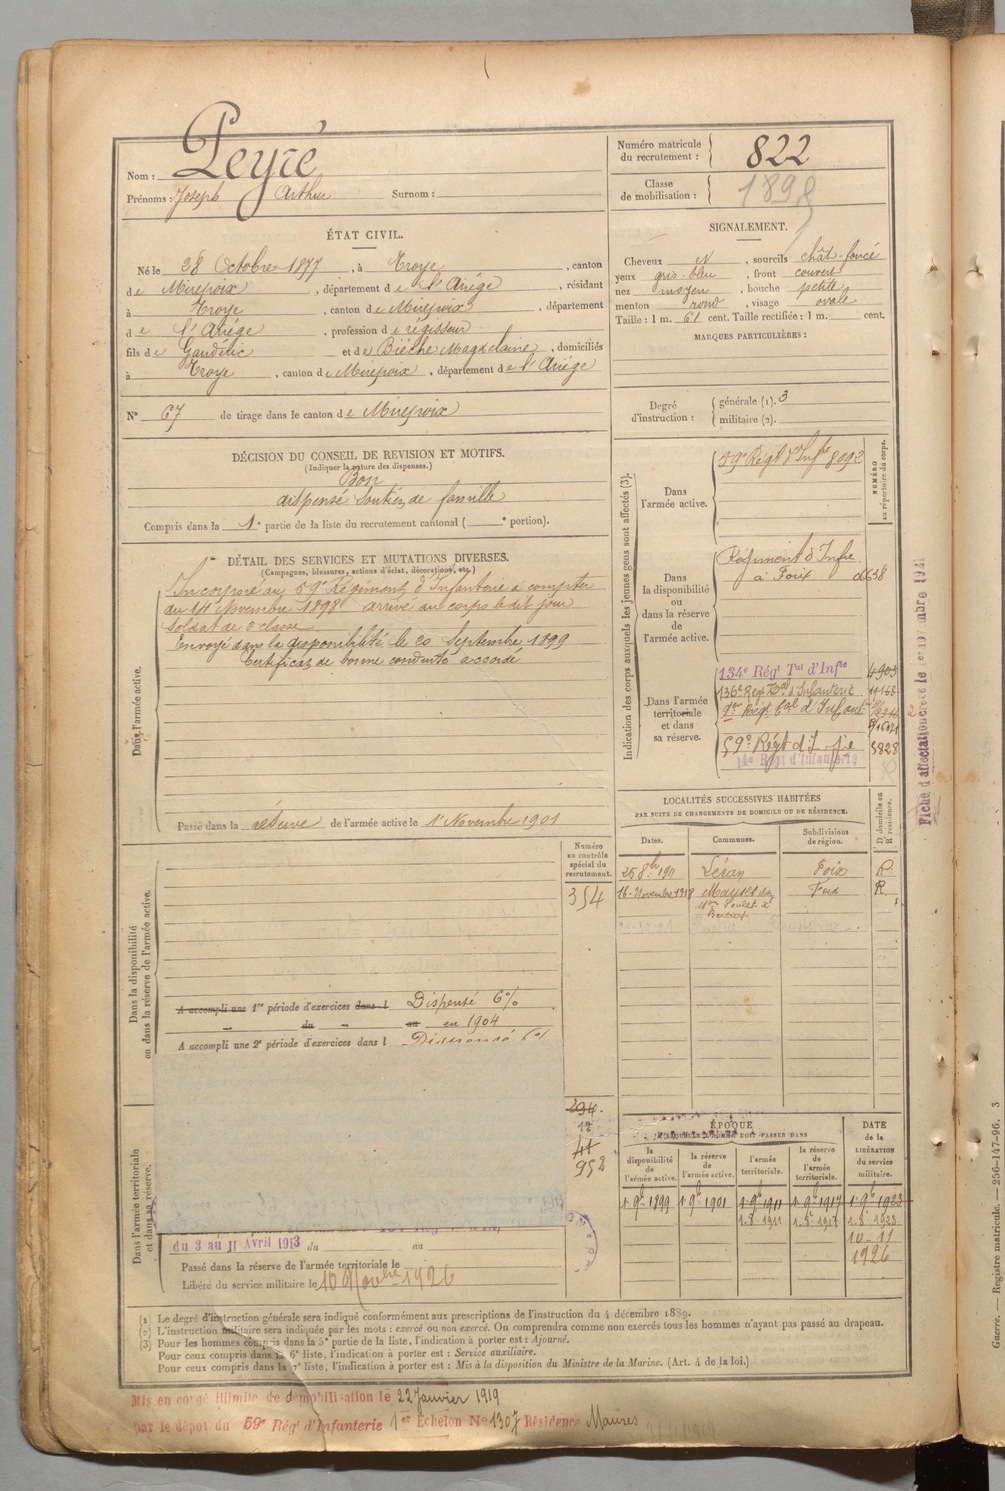 Nom : Peyré
Prénoms : Joseph Arthur Surnom :
Numéro matricule
du recrutement : 822
Classe
de mobilisation : 1898
ÉTAT CIVIL.
Né le 28 Octobre 1877, à Troye, canton
de Mirepoix, département de l'Ariége, résidant
à Troye, canton de Mirepoix, département
de l'Ariége, profession de régisseur
fils de Gaudélic et de Biéche Magdelaine, domiciliés
à Troye, canton de Mirepoix, département de l'Ariége
N° 67 de tirage dans le canton de Mirepoix
SIGNALEMENT.
Cheveux N, sourcils chât-foncé
yeux gris-bleu, front couvert
nez moyen, bouche petite
menton rond, visage ovale
Taille : 1 m. 61 cent. Taille rectifiée : 1 m. cent.
MARQUES PARTICULIÈRES :
Degré
d'instruction :
générale (1). 3
militaire (2).
DÉCISION DU CONSEIL DE REVISION ET MOTIFS.
(Indiquer la nature des dispenses.)
Bon
dispensé soutien de famille
Compris dans la 1e partie de la liste du recrutement cantonal ( e portion).
DÉTAIL DES SERVICES ET MUTATIONS DIVERSES.
(Campagnes, blessures, actions d'éclat, décorations, etc.)
Dans l'armée active.
Incorporé au 59e Régiment d'Infanterie à compter
du 14 Novembre 1898 arrivé au corps le dit jour
Soldat de 2 classe
Envoyé dans la disponibilité le 20 Septembre 1899
Certificat de bonne conduite accordé
Passé dans la réserve de l'armée active le 1r Novembre 1901
Indication des corps auxquels les jeunes gens sont affectés (3).
NUMÉRO
au répertoire du corps.
Dans
l'armée active.
59e Régt d'Infrie 8092
Dans
la disponibilité
ou
dans la réserve
de
l'armée active.
Régiment d'Infie
à Foix
Dans l'armée
territoriale
et dans
sa réserve.
134e Régt Tal d'Infie 4903
136e Régt Tal d'Infanterie
Régt Tal d'Infant
59e Régt d'Infie 3828
Régt d'Infanterie
Fiche d'affectation
LOCALITÉS SUCCESSIVES HABITÉES
PAR SUITE DE CHANGEMENTS DE DOMICILE OU DE RÉSIDENCE.
Dates.
Communes.
Subdivisions
de région.
D. domicile ou
R. résidence.
25 8bre 1911 Léran Foix R.
16 Novembre 1918 Foix R.
Numéro
au contrôle
spécial du
recrutement.
354
Dans la disponibilité
ou dans la réserve de l'armée active.
A accompli une 1re période d'exercices dans l Dispensé 6%
du au en 1904
A accompli une 2e période d'exercices dans l Dispensé 6%
294
12
41
952
Dans l'armée territoriale
et dans sa réserve.
du 3 au 11 Avril 1913 du au
Passé dans la réserve de l'armée territoriale le
Libéré du service militaire le 10 Novbre 1926
ÉPOQUE
À LAQUELLE L'HOMME DOIT PASSER DANS
la
disponibilité
de
l'armée active.
la réserve
de
l'armée active.
l'armée
territoriale.
la réserve
de
l'armée
territoriale.
DATE
de la
LIBÉRATION
du service
militaire.
1r 9b 1899 1r 9b 1901 1r 9b 1911 1r 9b 1917 1r 9b 1923
1-8 1911 1-8 1917 1-8 1923
10-11
1926
(1) Le degré d'instruction générale sera indiqué conformément aux prescriptions de l'instruction du 4 décembre 1889.
(2) L'instruction militaire sera indiquée par les mots : exercé ou non exercé. On comprendra comme non exercés tous les hommes n'ayant pas passé au drapeau.
(3) Pour les hommes compris dans la 5e partie de la liste, l'indication à porter est : Ajourné.
Pour ceux compris dans la 6e liste, l'indication à porter est : Service auxiliaire.
Pour ceux compris dans la 7e liste, l'indication à porter est : Mis à la disposition du Ministre de la Marine. (Art. 4 de la loi.)
Mis en congé illimité de démobilisation le 22 Janvier 1919
par le dépôt du 59e Régt d'Infanterie 1er Échelon No 1307 Résidence Mauses
Guerre. — Registre matricule. — 256-147-96. 3